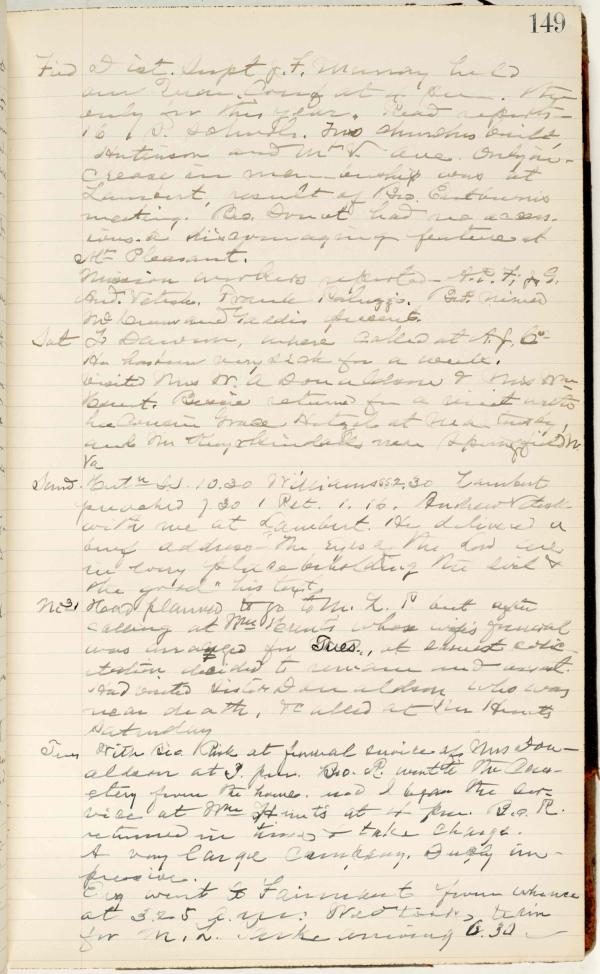 149
Frid Dist. Supt J. F. Murray held
our Quar. Conf at 4 P.M. the
only for this year. Read reports
16 1 S. Schools. Two churches built
Hutinson and Ave. Only in-
crease in membership was at
Lambert, result of Bro.
meeting. Bro. Donat had no access-
ions. a discouraging feature at
Mt Pleasant.
Mission workers reported
And. Frank
and present.
Sat To Dawson, where called at A. J.
Her husband very sick for a week.
Visit Mrs W. A Donaldson & Mrs Wm
Hunt. returned from a visit with
her cousin Grace at near
and near Springfield W.
Va
Sund. Hut S.S. 10.30 Williams 2.30 Lambert
preached 7 30 1 Pet. 1. 16. Andrew
with me at Lambert. He delivered a
brief address "The Eyes of the Lord are
in every place beholding the evil &
the good" his text.
Mo 31 Had planned to go to M. L. P. but after
calling at Wm Hunts whose wife's funeral
was arranged for Tues., at earnest solic-
itation decided to remain and assist.
Had visited Sister Donaldson who was
near death, & called at Wm Hunts
Saturday
Tues With Bro. at funeral service of Mrs Don-
aldson at 3. p.m. Bro. R. went to the Cem-
etery from the home. and I began the ser-
vice at Wm Hunts at 4 p.m. Bro. R.
returned in time to take charge.
A very large company. Duly im-
pressive.
Evg went to Fairmont from whence
at 3.25 a.m. Wed took train
for M. L. Parke arriving 6.30